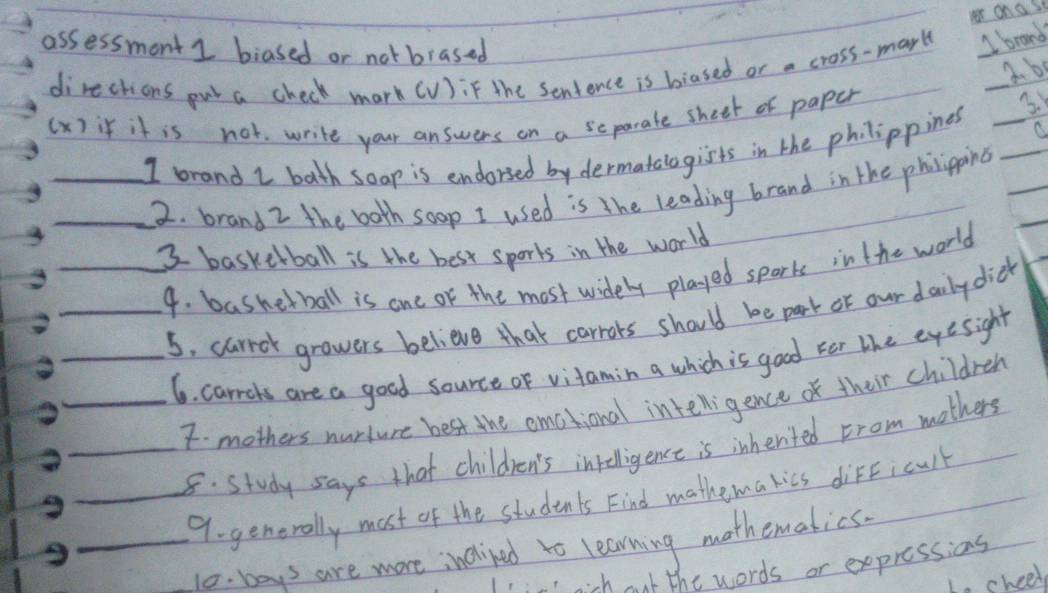 assessment 1 biased or not biased
directions put a check mark (v) if the sentence is biased or a cross-mark
(x) if it is not. write your answers on a separate sheet of paper
1 brand 2 bath soap is endorsed by dermatologists in the philippines
2. brand 2 the bath soap I used is the leading brand in the philippines
3 basketball is the best sports in the world
4. basketball is one of the most widely played sports in the world
5. carrot growers believe that carrots should be part of our daily diet
6. carrots are a good source of vitamin a which is good for the eyesight
7. mothers nurture best the emotional intelligence of their children
8. study says that children's intelligence is inherited from mothers
9. generally most of the students find mathematics difficult
10. boys are more inclined to learning mathematics.
out the words or expressions
sheet
on a
1 brand
2. b
3.